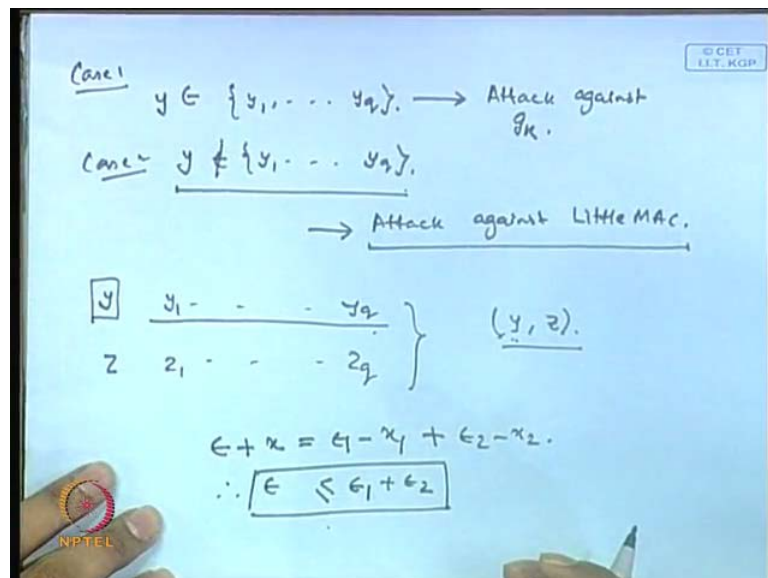 © CET
I.I.T. KGP
Case 1
y ∈ {y₁, - - - y_q}. ⟶ Attack against
g_K.
Case 2 y ∉ {y₁ - - - y_q}.
⟶ Attack against Little MAC.
y y₁ - - - y_q
z z₁ - - - z_q } (y, z).
ϵ + x = ϵ₁ - x₁ + ϵ₂ - x₂.
∴ ϵ ⩽ ϵ₁ + ϵ₂
NPTEL